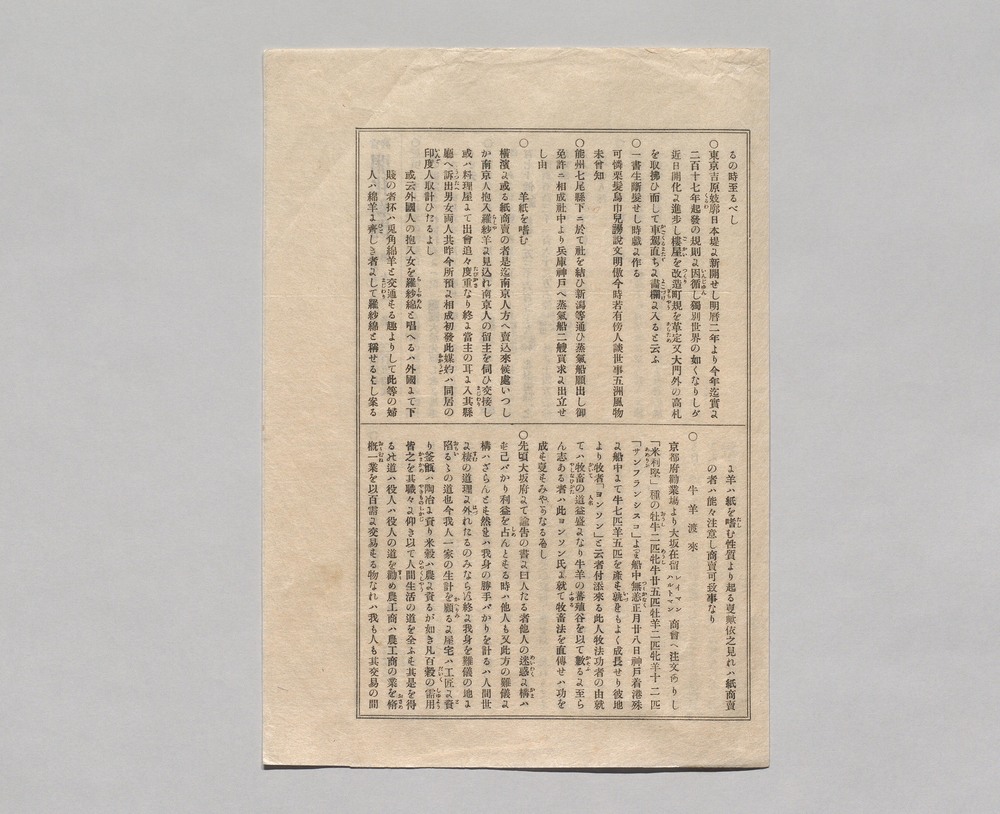 るの時至るべし
〇東京吉原妓廓日本堤よ新開せし明暦二年より今年迄實よ
二百十七年起發の規則よ因循し獨別世界の如くなりしが
近日開化よ進歩し樓屋を改造町規を革定又大門外の高札
を取拂ひ而して車駕直ちよ青欄よ入ると云ふ
〇一書生斷髮せし時戯よ作る
可憐栗髮烏巾兒謗説文明傲今時若有傍人談世事五洲風物
未曾知
〇能州七尾縣下ニ於て社を結び新潟等通ひ蒸氣船願出し御
免許ニ相成社中より兵庫神戸へ蒸氣船二艘買求よ出立せ
し由
〇　羊紙を嗜む
横濱よ或る紙商賣の者是迄南京人方へ賣込來候處いつし
か南京人抱入羅紗羊よ見込れ南京人の留主を伺ひ交接し
或ハ料理屋よて出會追々度重なり終よ當主の耳よ入其縣
廳へ訴出男女両人共昨今所預よ相成初發此媒妁ハ同居の
印度人取計ひたるよし
或云外國人の抱入女を羅紗綿と唱へるハ外國よて下
賤の者抔ハ兎角綿羊と交通する趣よりして此等の婦
人ハ綿羊よ齊しき者よして羅紗綿と稱せるよし案る
よ羊ハ紙を嗜む性質より起る事歟依之見れハ紙商賣
の者ハ能々注意し商賣可致事なり
〇　牛羊渡來
京都府勸業場より大坂在留レイマンハルトマン商會へ注文ありし
「米利堅」種の牡牛二匹牝牛廿五匹牡羊二匹牝羊十二匹
「サンフランシスコ」よ〻船中無恙正月廿八日神戸着港殊
よ船中よて牛七匹羊五匹を產を孰をもよく成長せり彼地
より牧者「ヨンソン」と云者付添來る此人牧法功者の由就
てハ牧畜の道益盛よなり牛羊の蕃殖谷を以て數るよ至ら
ん志ある者ハ此ヨンソン氏よ就て牧畜法を直傳せハ功を
成も亦すみやかなるべし
〇先頃大坂府よて諭告の書よ曰人たる者他人の迷惑よ構ハ
も己ばかり利益を占んとする時ハ他人も又此方の難儀よ
構ハざらんとを然をハ我身の勝手バかりを計るハ人間世
よ棲の道理よ外れたるのみならず終よ我身を難儀の地よ
陷るゝの道也今我人一家の生計を顧るよ屋宅ハ工匠よ賚
り釜甑ハ陶冶よ賚り米穀ハ農よ賚るが如き凡百穀の需用
皆之を其職々よ仰き以て人間生活の道を全ふす其是を得
るの道ハ役人ハ役人の道を勸め農工商ハ農工商の業を脩
概一業を以百需よ交易する物なれハ我も人も其交易の間